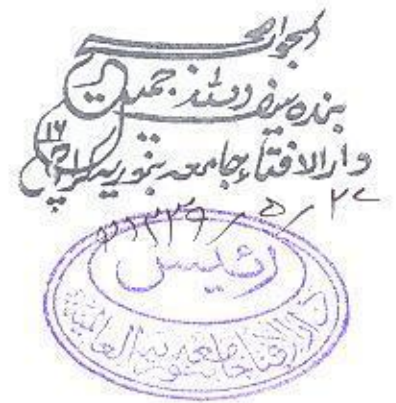 الجواب صحیح
بندہ سیف اللہ جمیل
دار الافتاء جامعہ بنوریہ کراچی ۱۶
۲۷/۵/۱۴۳۹ھ
رئیس
دار الافتاء جامعہ بنوریہ العالمیۃ